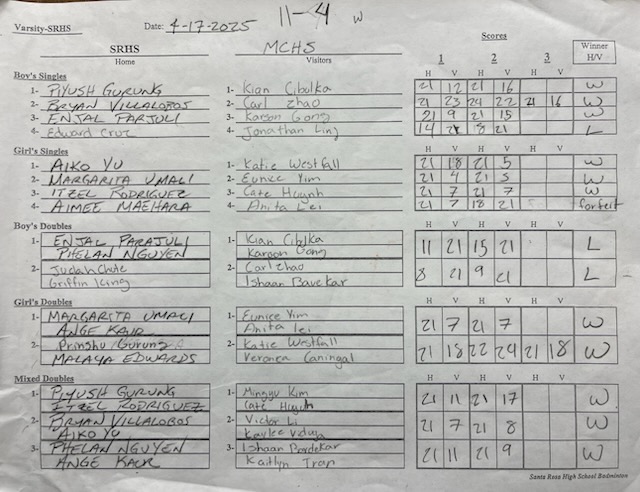 Varsity-SRHS Date: 4-17-2025 11-4 W
SRHS MCHS Scores
Home Visitors 1 2 3 Winner H/V
Boy's Singles H V H V H V
1- Piyush Gurung 1- Kian Cibulka 21 12 21 16 W
2- Bryan Villalobos 2- Carl Zhao 21 23 24 22 21 16 W
3- Enjal Parjuli 3- Karson Gong 21 9 21 15 W
4- Edward Cruz 4- Jonathan Ling 14 21 18 21 L
Girl's Singles H V H V H V
1- Aiko Yu 1- Katie Westfall 21 18 21 5 W
2- Margarita Umali 2- Eunice Yim 21 4 21 5 W
3- Itzel Rodriguez 3- Cate Huynh 21 7 21 7 W
4- Aimee Maehara 4- Anita Lei 21 7 18 21 forfeit
Boy's Doubles H V H V H V
1- Enjal Parajuli 1- Kian Cibulka 11 21 15 21 L
Phelan Nguyen Karson Gong
2- Judah 2- Carl Zhao 8 21 9 21 L
Griffin King Ishaan
Girl's Doubles H V H V H V
1- Margarita Umali 1- Eunice Yim 21 7 21 7 W
Ange Kaur Anita Lei
2- Prinshu Gurung 2- Katie Westfall 21 18 22 24 21 18 W
Malaya Edwards Veronica Caningal
Mixed Doubles H V H V H V
1- Piyush Gurung 1- Mingyu Kim 21 11 21 17 W
Itzel Rodriguez Cate Huynh
2- Bryan Villalobos 2- Victor Li 21 7 21 8 W
Aiko Yu Kaylee
3- Phelan Nguyen 3- Ishaan 21 11 21 9 W
Ange Kaur Kaitlyn Tran
Santa Rosa High School Badminton